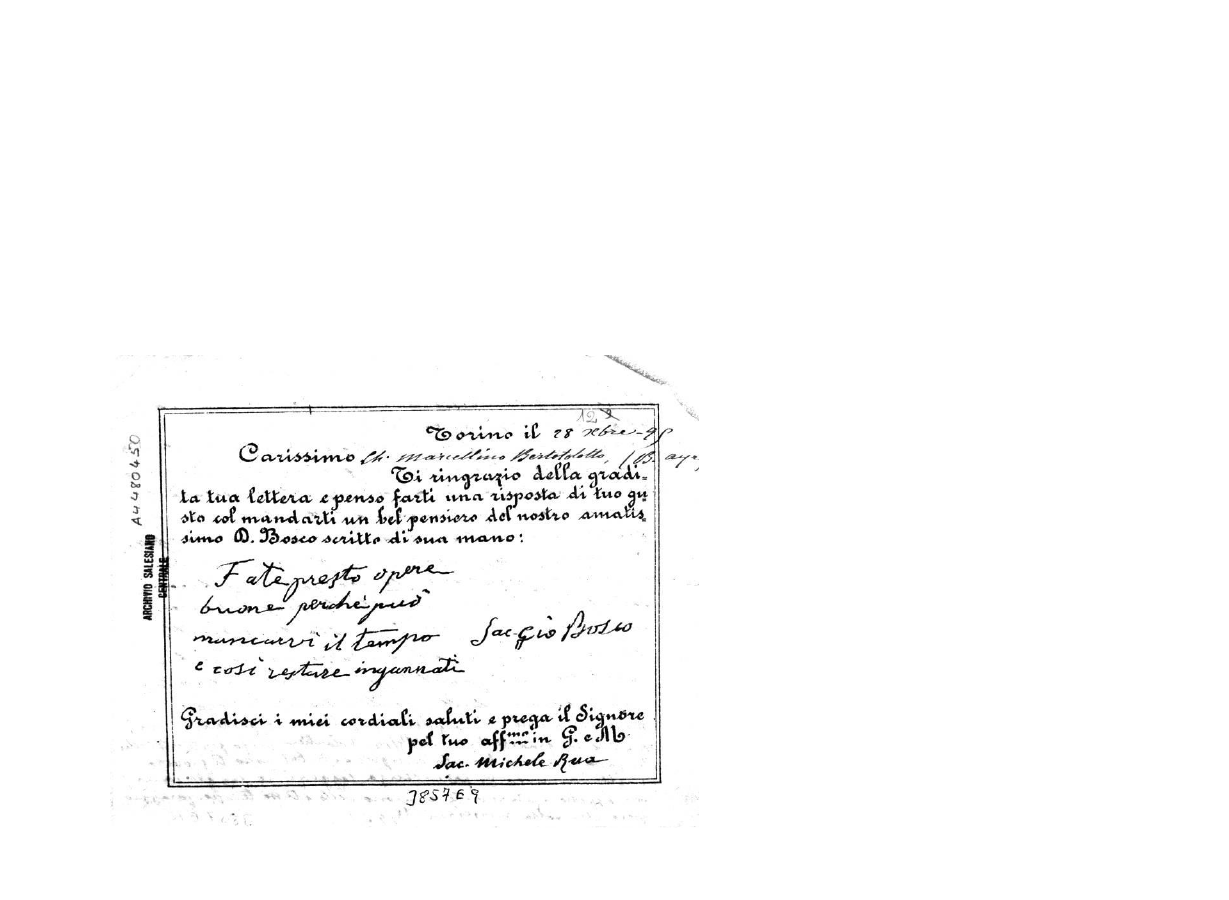 12
Torino il 28 xbre-95
Carissimo Ch. Marcellino Bertoldolto, (B. ayr,
Ti ringrazio della gradi-
ta tua lettera e penso farti una risposta di tuo gu
sto col mandarti un bel pensiero del nostro amatis
simo D. Bosco scritto di sua mano:
Fate presto opere
buone perché può
mancarvi il tempo
e così restare ingannati
Sac Gio Bosco
Gradisci i miei cordiali saluti e prega il Signore
pel tuo aff.mo in G. e M.
Sac. Michele Rua
3857E9
A4480450
ARCHIVIO SALESIANO
CENTRALE